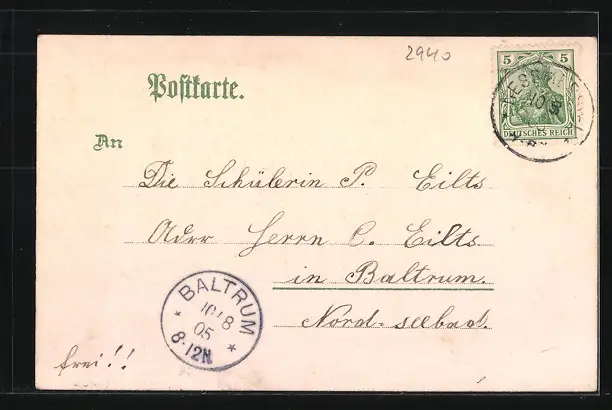 2940
5 5
DEUTSCHES REICH
Postkarte.
An
Die Schülerin P. Eilts
Adrr Herrn C. Eilts
in Baltrum.
Nord-seebad.
* BALTRUM *
10/8
05
8-12N
frei!!